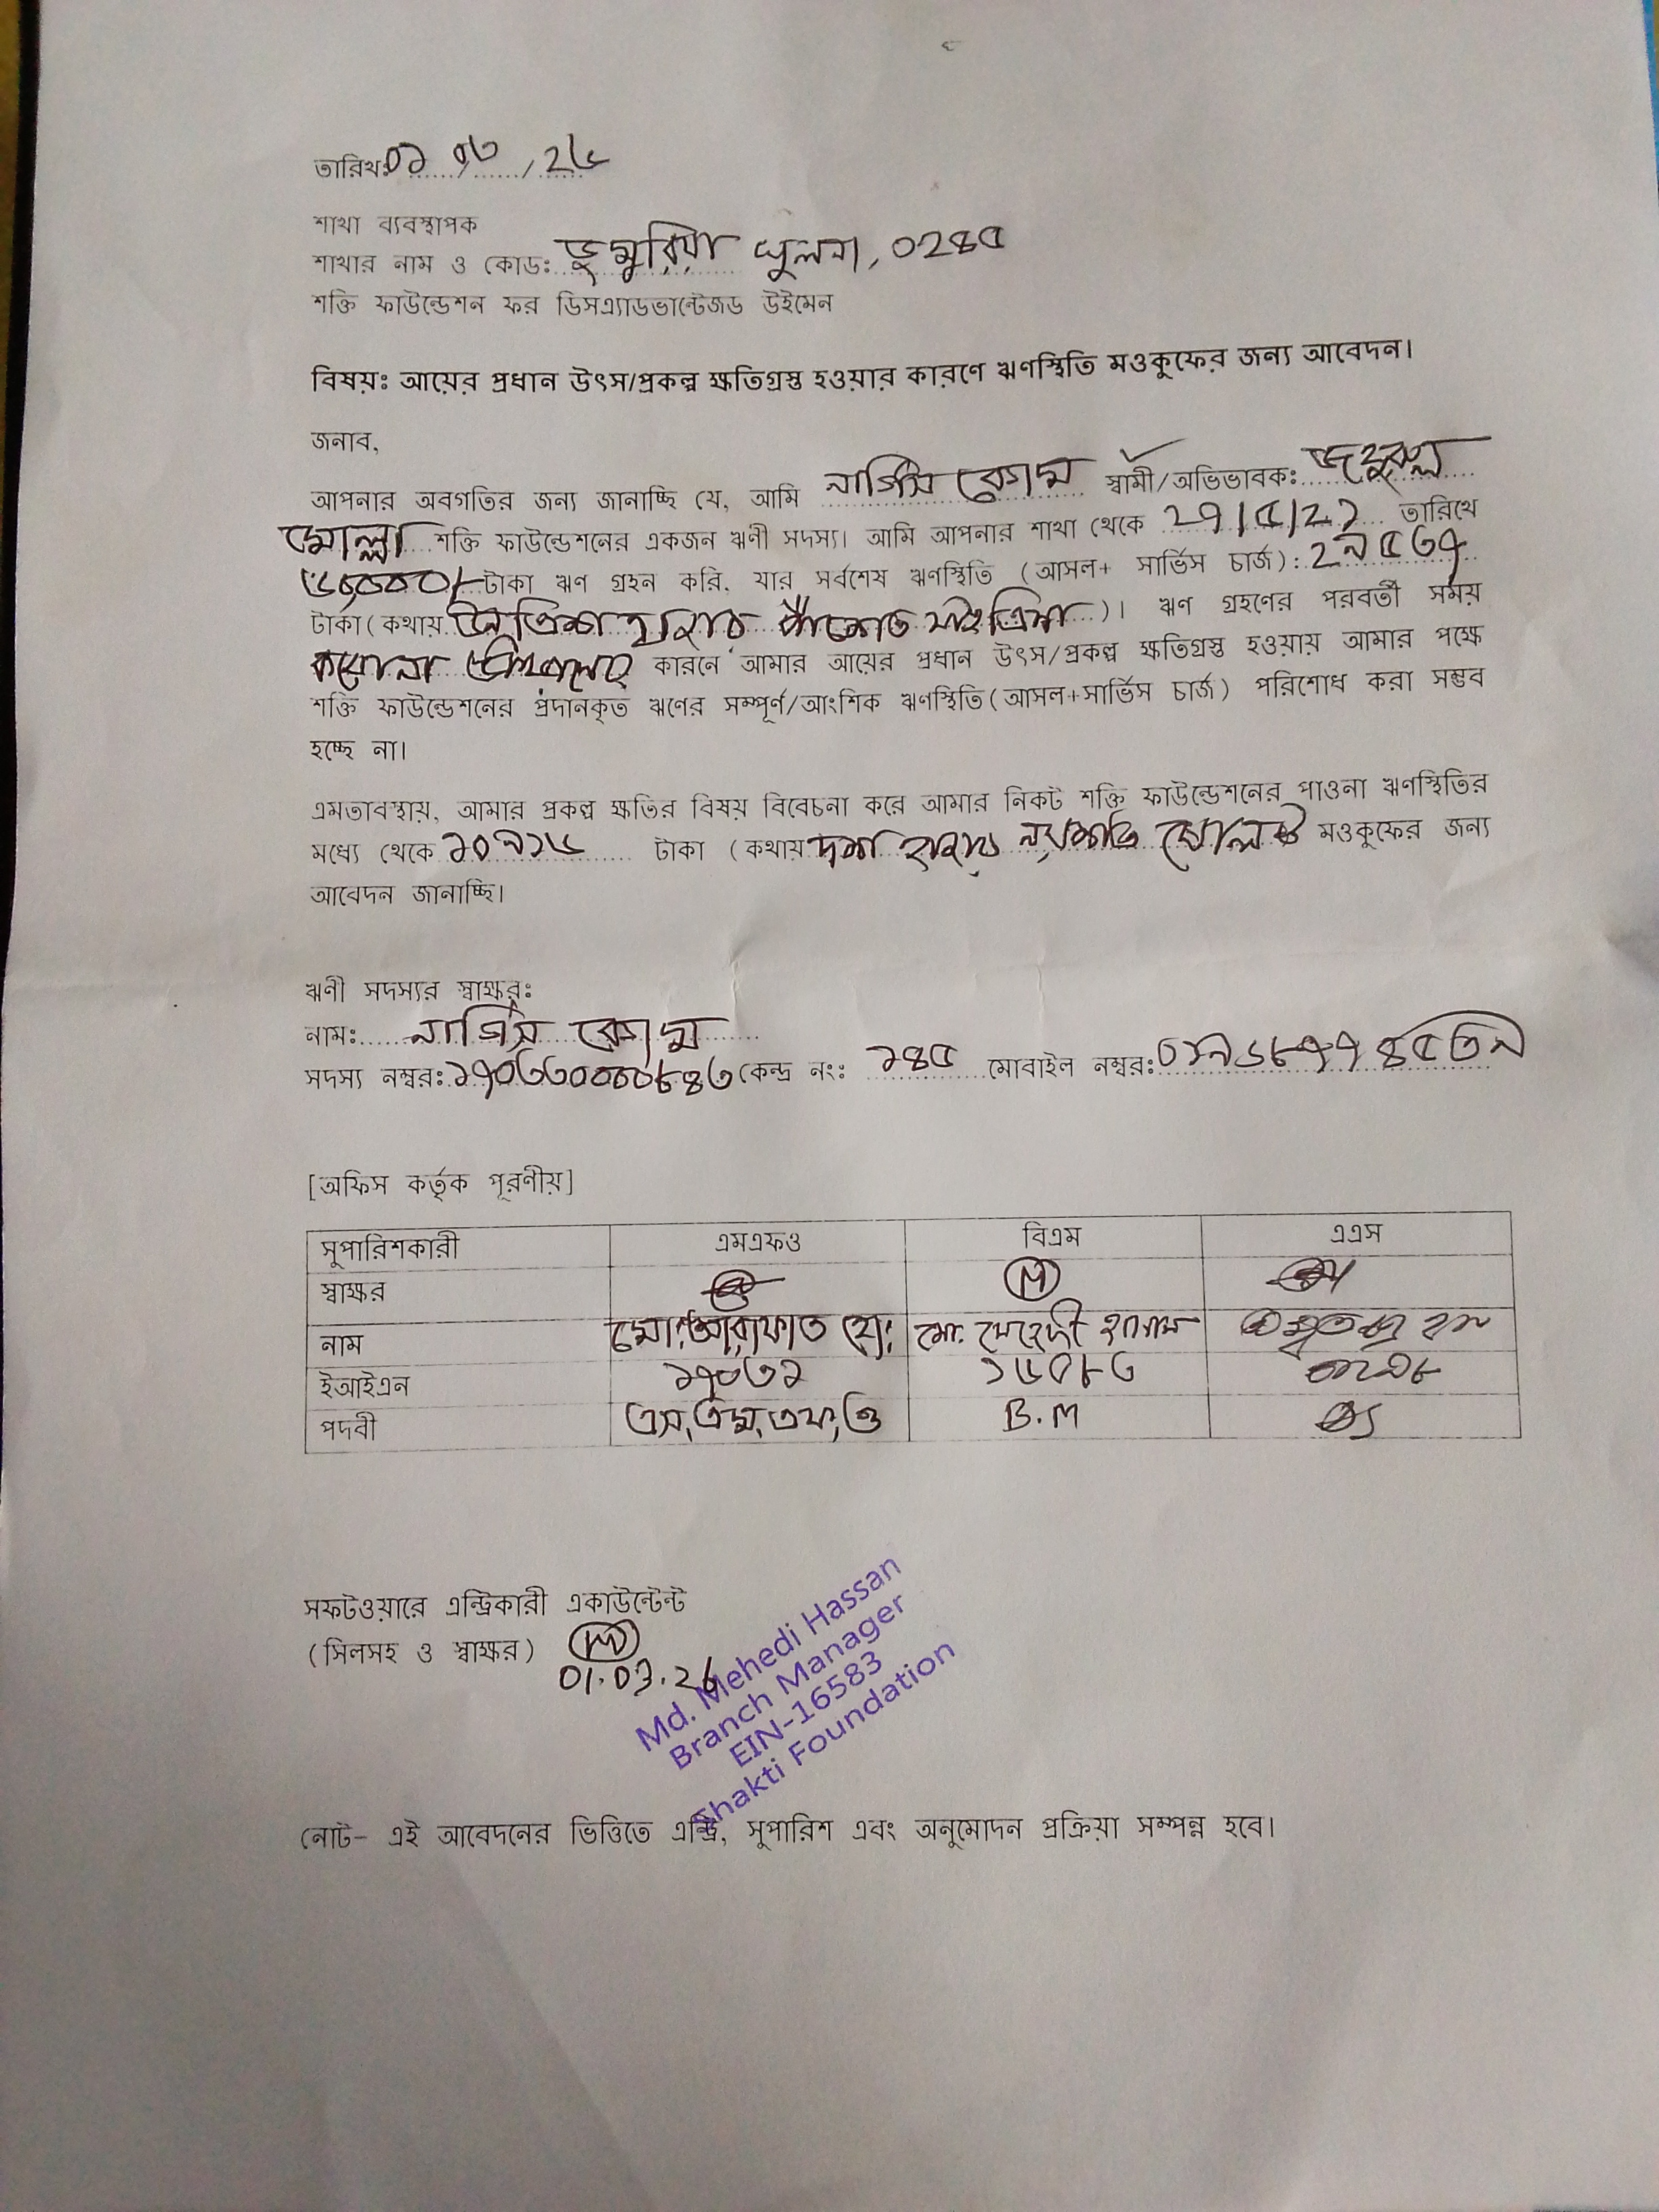 তারিখঃ ০১ / ০৩ / ২৬
শাখা ব্যবস্থাপক
শাখার নাম ও কোডঃ ডুমুরিয়া খুলনা, ০২৪৫
শক্তি ফাউন্ডেশন ফর ডিসএ্যাডভান্টেজড উইমেন
বিষয়ঃ আয়ের প্রধান উৎস/প্রকল্প ক্ষতিগ্রস্ত হওয়ার কারণে ঋণস্থিতি মওকুফের জন্য আবেদন।
জনাব,
আপনার অবগতির জন্য জানাচ্ছি যে, আমি নার্গিস বেগম স্বামী/অভিভাবকঃ
মোল্লা শক্তি ফাউন্ডেশনের একজন ঋণী সদস্য। আমি আপনার শাখা থেকে ২৭/৫/২১ তারিখে
৬০০০০/- টাকা ঋণ গ্রহন করি, যার সর্বশেষ ঋণস্থিতি (আসল+ সার্ভিস চার্জ): ২৯৫৩৭
টাকা (কথায় উনত্রিশ হাজার পাঁচশত সাইত্রিশ )। ঋণ গ্রহণের পরবর্তী সময়
করোনা কারনে আমার আয়ের প্রধান উৎস/প্রকল্প ক্ষতিগ্রস্ত হওয়ায় আমার পক্ষে
শক্তি ফাউন্ডেশনের প্রদানকৃত ঋণের সম্পূর্ণ/আংশিক ঋণস্থিতি (আসল+সার্ভিস চার্জ) পরিশোধ করা সম্ভব
হচ্ছে না।
এমতাবস্থায়, আমার প্রকল্প ক্ষতির বিষয় বিবেচনা করে আমার নিকট শক্তি ফাউন্ডেশনের পাওনা ঋণস্থিতির
মধ্যে থেকে ১০৯১৬ টাকা (কথায় দশ হাজার নয়শত ষোল মওকুফের জন্য
আবেদন জানাচ্ছি।
ঋণী সদস্যর স্বাক্ষরঃ
নামঃ নার্গিস বেগম
সদস্য নম্বরঃ ১৭০৩৩০০০০৮৪৩ কেন্দ্র নংঃ ১৪৫ মোবাইল নম্বরঃ ০১৯৬৮৭৭৪৫৩৯
[অফিস কর্তৃক পূরণীয়]
সুপারিশকারী এমএফও বিএম এএস
স্বাক্ষর
নাম মোঃ আরাফাত হোঃ মোঃ মেহেদী হাসান
ইআইএন ১৭০৩১ ১৬৫৮৩
পদবী এস,এম,এফ,ও B.M
সফটওয়ারে এন্ট্রিকারী একাউন্টেন্ট
(সিলসহ ও স্বাক্ষর)
01.03.26
Md. Mehedi Hassan
Branch Manager
EIN-16583
Shakti Foundation
নোট- এই আবেদনের ভিত্তিতে এন্ট্রি, সুপারিশ এবং অনুমোদন প্রক্রিয়া সম্পন্ন হবে।